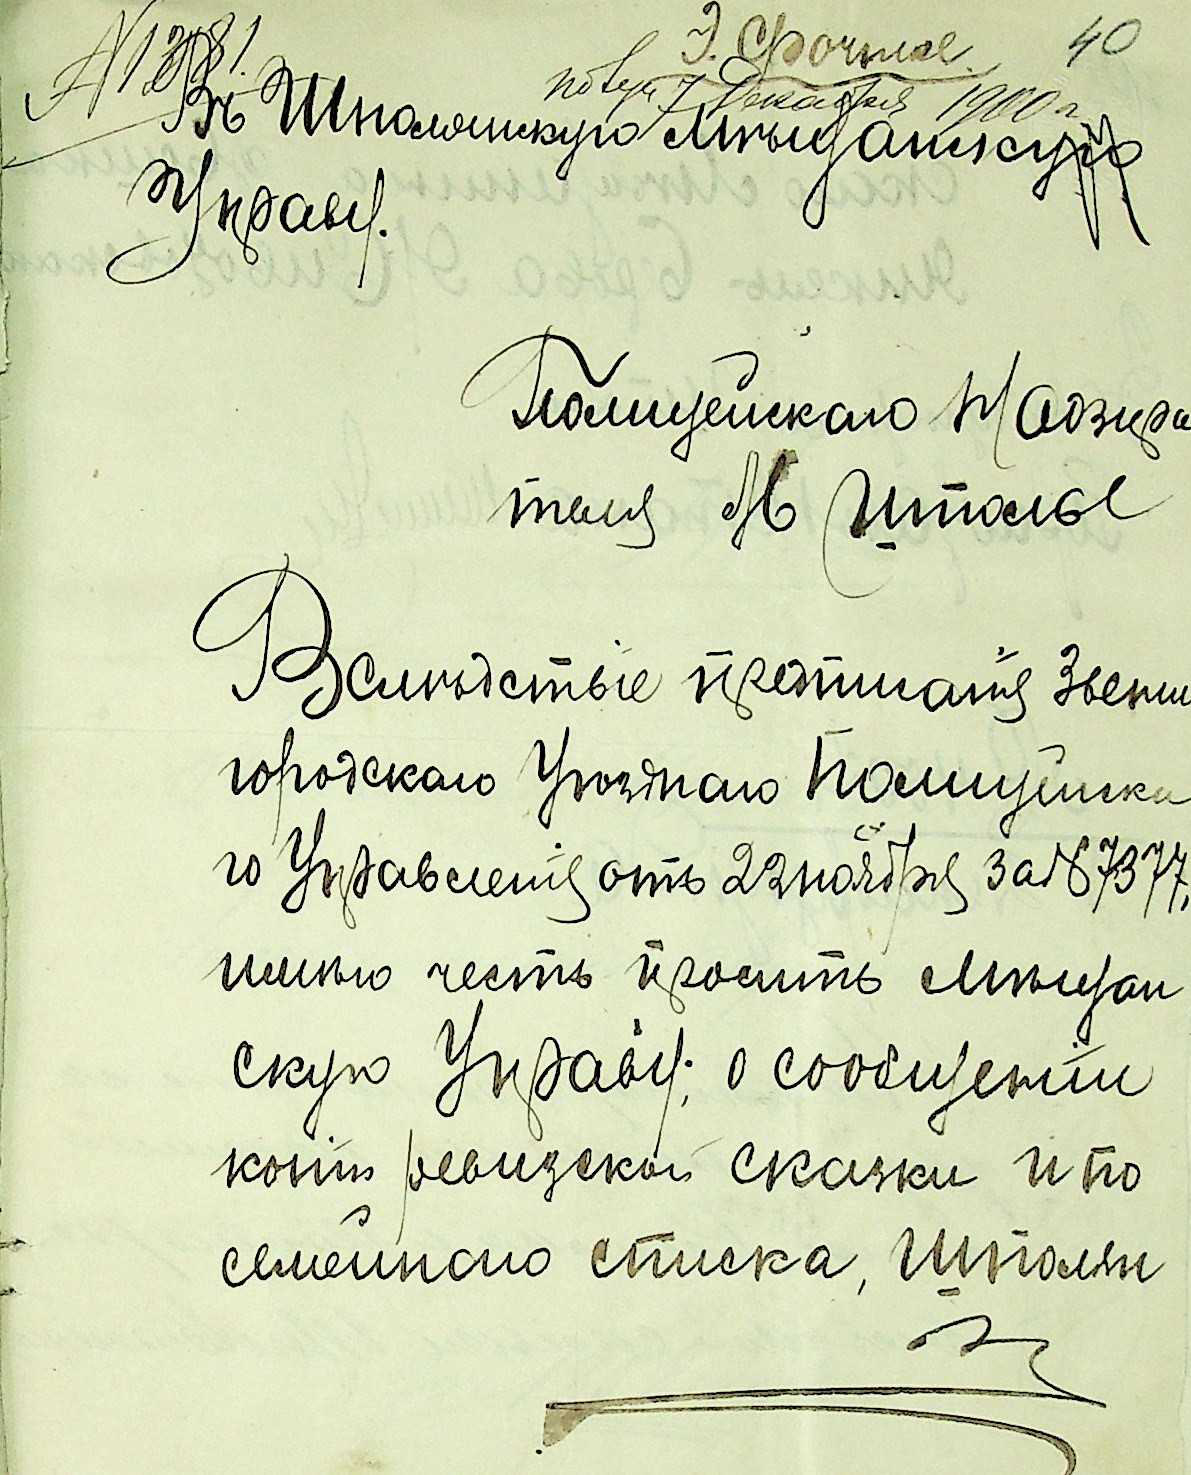 40
Э. Срочное.
№ 1381.
получ. 7 Декабря 1900 г.
Въ Шполянскую Мѣщанскую
Управу.
Полицейскаго Надзира
теля М Шполы
Вслѣдствіе предписанія Звени
городскаго Уѣзднаго Полицейска
го Управленія отъ 22 ноября за № 7377,
имѣю честь просить Мѣщан
скую Управу, о сообщеніи
копіи ревизской сказки и по
семейнаго списка, Шполян